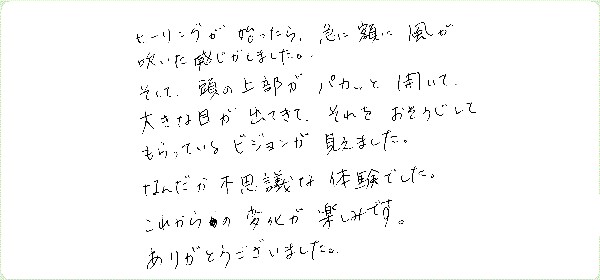 ヒーリングが始ったら、急に額に風が
吹いた感じがしました。
そして、頭の上部がパカッと開いて、
大きな目が出てきて、それをおそうじして
もらっているビジョンが見えました。
なんだか不思議な体験でした。
これからの変化が楽しみです。
ありがとうございました。